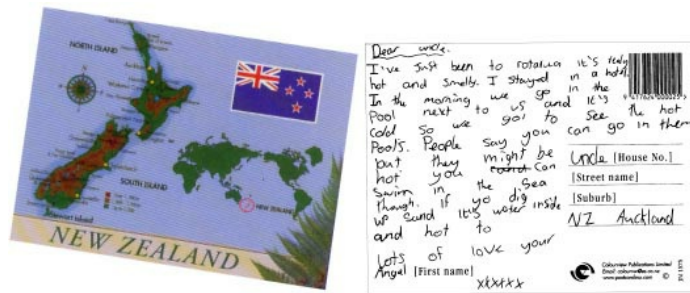 NORTH ISLAND
SOUTH ISLAND
Stewart Island
NEW ZEALAND
NEW ZEALAND
Dear uncle.
I've Just been to rotarua it's realy
hot and smelly. I stayed in a hotel.
In the morning we go in the
Pool next to us and it's
cold so we goi to see the hot
Pools. People say you can go in them
but they might be
hot you can
Swim in the Sea
though. If yo dig
up Sand It's water inside
and hot to
Lots of love your
Angel [First name]
xxxxxx
uncle [House No.]
[Street name]
[Suburb]
NZ Auckland
Colourview Publications Limited